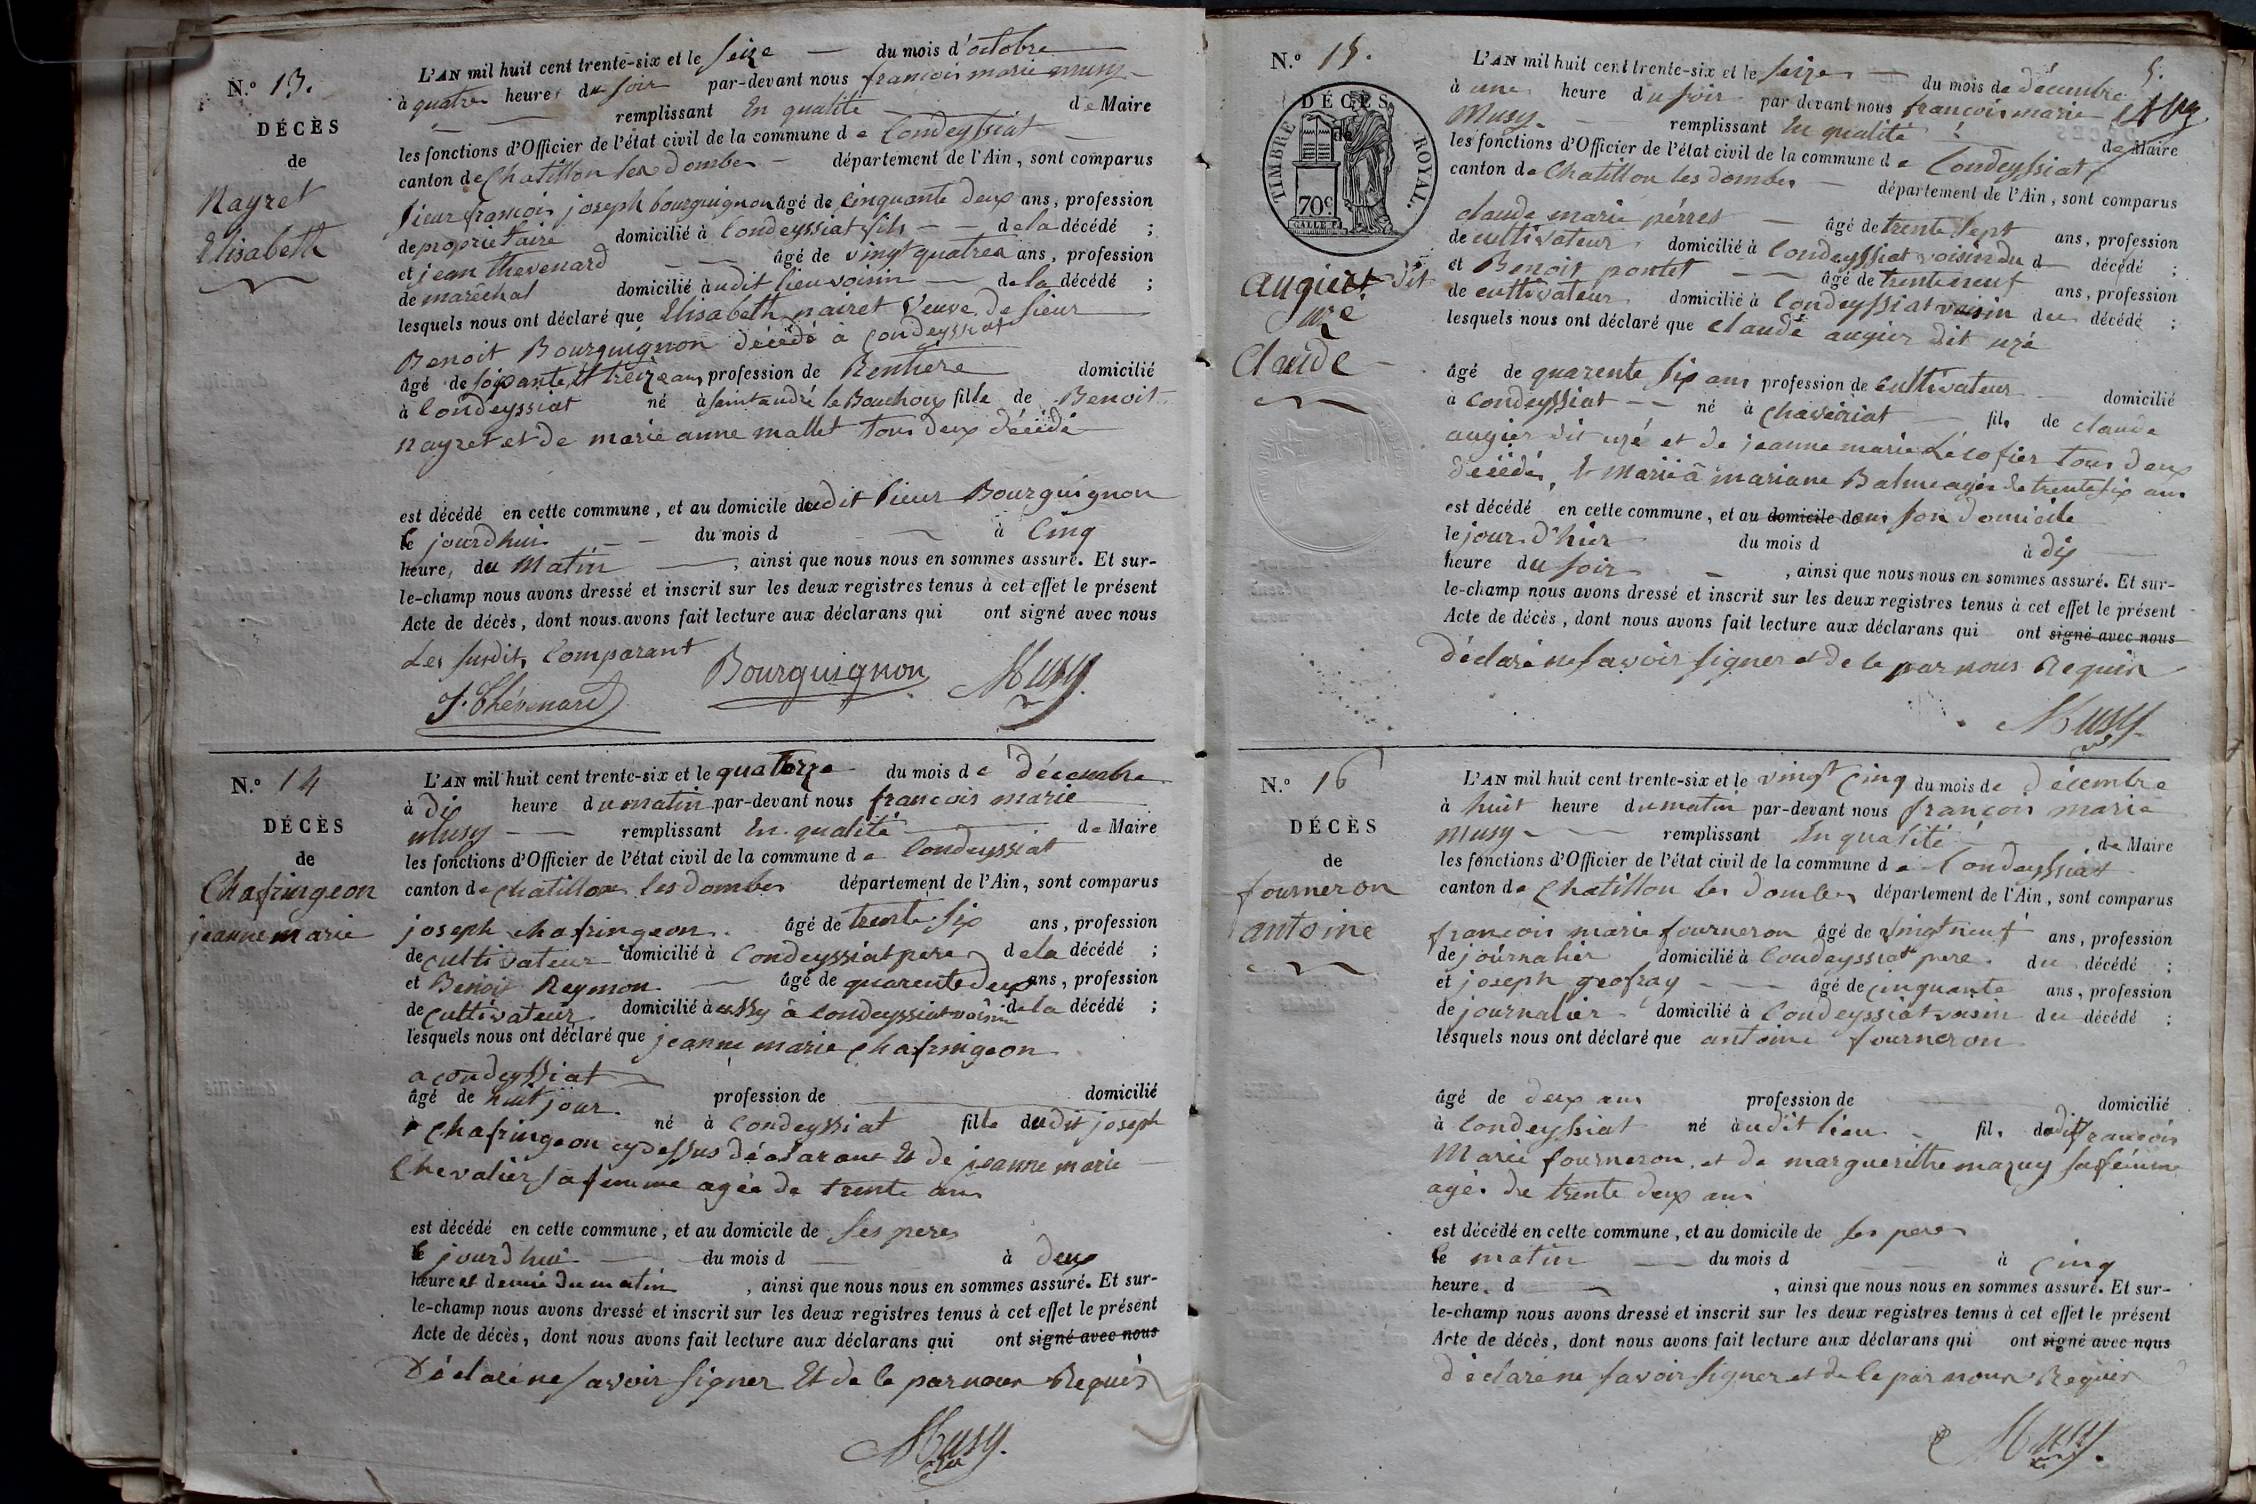 N.° 13.
DÉCÈS
de
Nayret
Elisabeth
L'AN mil huit cent trente-six et le seize du mois d'octobre
à quatre heures du soir par-devant nous françois marie musy
remplissant En qualité de Maire
les fonctions d'Officier de l'état civil de la commune de Condeyssiat
canton de Chatillon les dombes département de l'Ain, sont comparus
sieur françois joseph bourguignon âgé de cinquante deux ans, profession
de propriétaire domicilié à Condeyssiat fils de la décédé ;
et jean thevenard âgé de vingt quatre ans, profession
de maréchal domicilié audit lieu voisin de la décédé ;
lesquels nous ont déclaré que Elisabeth nairet veuve de sieur
Benoit Bourguignon décédé à Condeyssiat
âgé de soixante et treize ans profession de Rentière domicilié
à Condeyssiat né à saint andré le Bouchoux fille de Benoit
nayret et de marie anne mallet tous deux décédé
est décédé en cette commune, et au domicile dudit sieur Bourguignon
le jourdhui du mois d à Cinq
heure, du Matin , ainsi que nous nous en sommes assuré. Et sur-
le-champ nous avons dressé et inscrit sur les deux registres tenus à cet effet le présent
Acte de décès, dont nous avons fait lecture aux déclarans qui ont signé avec nous
Les susdits Comparant
J. Thévenard Bourguignon Musy.
N.° 14
DÉCÈS
de
Chafringeon
jeanne marie
L'AN mil huit cent trente-six et le quatorze du mois de décembre
à dix heure du matin par-devant nous françois marie
Musy remplissant En qualité de Maire
les fonctions d'Officier de l'état civil de la commune de Condeyssiat
canton de Chatillon les dombes département de l'Ain, sont comparus
joseph chafringeon âgé de trente six ans, profession
de cultivateur domicilié à Condeyssiat pere de la décédé ;
et Benoit Reymon âgé de quarente deux ans, profession
de cultivateur domicilié à à Condeyssiat voisin de la décédé ;
lesquels nous ont déclaré que jeanne marie chafringeon
a condeyssiat
âgé de huit jour profession de domicilié
né à Condeyssiat fille dudit joseph
chafringeon cydessus déclarant Et de jeanne marie
Chevalier sa femme agée de trente ans
est décédé en cette commune, et au domicile de ses peres
le jourdhui du mois d à deux
heure et demie du matin , ainsi que nous nous en sommes assuré. Et sur-
le-champ nous avons dressé et inscrit sur les deux registres tenus à cet effet le présent
Acte de décès, dont nous avons fait lecture aux déclarans qui ont signé avec nous
Déclaré ne savoir signer Et de ce par nous Requis
Musy.
N.° 15.
DÉCÈS
de
TIMBRE ROYAL.
70c.
augier dit
uzé
Claude
5.
L'AN mil huit cent trente-six et le seize du mois de décembre
à une heure du soir par devant nous françois marie
Musy remplissant En qualité de Maire
les fonctions d'Officier de l'état civil de la commune de Condeyssiat
canton de Chatillon les dombes département de l'Ain, sont comparus
claude marie pérres âgé de trente sept ans, profession
de cultivateur domicilié à Condeyssiat voisin du décédé ;
et Benoit pontet âgé de trente neuf ans, profession
de cultivateur domicilié à Condeyssiat voisin du décédé ;
lesquels nous ont déclaré que claude augier dit uzé
âgé de quarente six ans profession de cultivateur domicilié
à Condeyssiat né à chaveriat fils de claude
augier dit uzé et de jeanne marie Lécofier tous deux
décédé, Et marié à mariane Balme agée de trente six ans
est décédé en cette commune, et au domicile dans son domicile
le jour d'hier du mois d à dix
heure du soir , ainsi que nous nous en sommes assuré. Et sur-
le-champ nous avons dressé et inscrit sur les deux registres tenus à cet effet le présent
Acte de décès, dont nous avons fait lecture aux déclarans qui ont signé avec nous
déclaré ne savoir signer et de ce par nous Requis
Musy.
N.° 16
DÉCÈS
de
fourneron
antoine
L'AN mil huit cent trente-six et le vingt Cinq du mois de décembre
à huit heure du matin par-devant nous françois marie
musy remplissant En qualité de Maire
les fonctions d'Officier de l'état civil de la commune de Condeyssiat
canton de Chatillon les dombes département de l'Ain, sont comparus
françois marie fourneron âgé de vingt neuf ans, profession
de journalier domicilié à Condeyssiat pere du décédé ;
et joseph geofray âgé de cinquante ans, profession
de journalier domicilié à Condeyssiat voisin du décédé ;
lesquels nous ont déclaré que antoine fourneron
âgé de deux ans profession de domicilié
à Condeyssiat né audit lieu fils dudit françois
Marie fourneron et de marguerithe mazuy sa femme
agée de trente deux ans
est décédé en cette commune, et au domicile de ses peres
le matin du mois d à cinq
heure. d , ainsi que nous nous en sommes assuré. Et sur-
le-champ nous avons dressé et inscrit sur les deux registres tenus à cet effet le présent
Acte de décès, dont nous avons fait lecture aux déclarans qui ont signé avec nous
déclaré ne savoir signer et de ce par nous Requis
Musy.